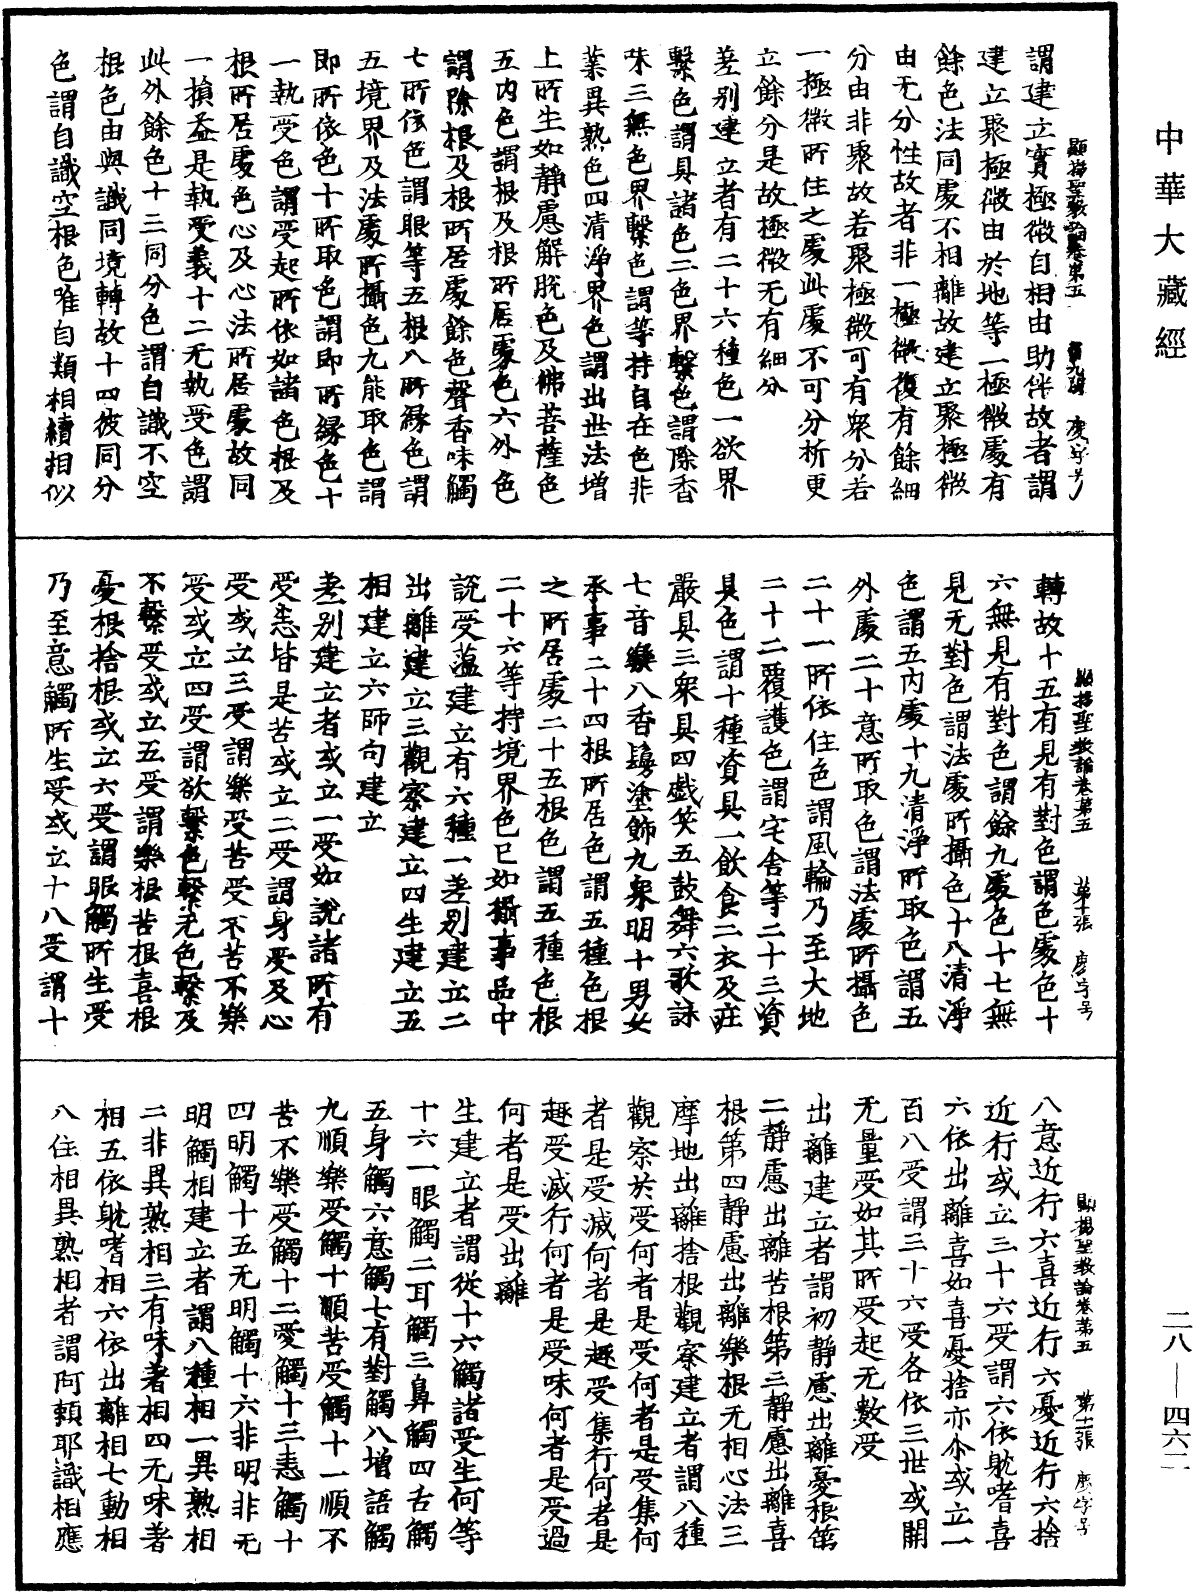 中華大藏經
顯揚聖教論卷第五
謂建立實極微自相由助伴故者謂
建立聚極微由於地等一極微處有
餘色法同處不相離故建立聚極微
由无分性故者非一極微復有餘細
分由非聚故若聚極微可有衆分若
一極微所住之處此處不可分析更
立餘分是故極微无有細分
差別建立者有二十六種色一欲界
繫色謂具諸色二色界繫色謂除香
味三無色界繫色謂等持自在色非
業異熟色四清淨界色謂出世法增
上所生如靜慮解脫色及佛菩薩色
五內色謂根及根所居處色六外色
謂除根及根所居處餘色聲香味觸
七所依色謂眼等五根八所緣色謂
五境界及法處所攝色九能取色謂
即所依色十所取色謂即所緣色十
一執受色謂受起所依如諸色根及
根所居處色心及心法所居處故同
一損益是執受義十二无執受色謂
此外餘色十三同分色謂自識不空
根色由與識同境轉故十四彼同分
色謂自識空根色唯自類相續相似
顯揚聖教論卷第五 第十張
轉故十五有見有對色謂色處色十
六無見有對色謂餘九處色十七無
見无對色謂法處所攝色十八清淨
色謂五內處十九清淨所取色謂五
外處二十意所取色謂法處所攝色
二十一所依住色謂風輪乃至大地
二十二覆護色謂宅舍等二十三資
具色謂十種資具一飲食二衣及莊
嚴具三衆具四戲笑五鼓舞六歌詠
七音樂八香鬘塗飾九衆明十男女
承事二十四根所居色謂五種色根
之所居處二十五根色謂五種色根
二十六等持境界色已如攝事品中
說受蘊建立有六種一差別建立二
出離建立三觀察建立四生建立五
相建立六師句建立
差別建立者或立一受如說諸所有
受悉皆是苦或立二受謂身受及心
受或立三受謂樂受苦受不苦不樂
受或立四受謂欲繫色繫无色繫及
不繫受或立五受謂樂根苦根喜根
憂根捨根或立六受謂眼觸所生受
乃至意觸所生受或立十八受謂十
顯揚聖教論卷第五 第十一張
八意近行六喜近行六憂近行六捨
近行或立三十六受謂六依躭嗜喜
六依出離喜如喜憂捨亦尒或立一
百八受謂三十六受各依三世或開
无量受如其所受起无數受
出離建立者謂初靜慮出離憂根第
二靜慮出離苦根第三靜慮出離喜
根第四靜慮出離樂根无相心法三
摩地出離捨根觀察建立者謂八種
觀察於受何者是受何者是受集何
者是受滅何者是趣受集行何者是
趣受滅行何者是受味何者是受過
何者是受出離
生建立者謂從十六觸諸受生何等
十六一眼觸二耳觸三鼻觸四舌觸
五身觸六意觸七有對觸八增語觸
九順樂受觸十順苦受觸十一順不
苦不樂受觸十二愛觸十三恚觸十
四明觸十五无明觸十六非明非无
明觸相建立者謂八種相一異熟相
二非異熟相三有味著相四无味著
相五依躭嗜相六依出離相七動相
八住相異熟相者謂阿賴耶識相應
二八—四六二